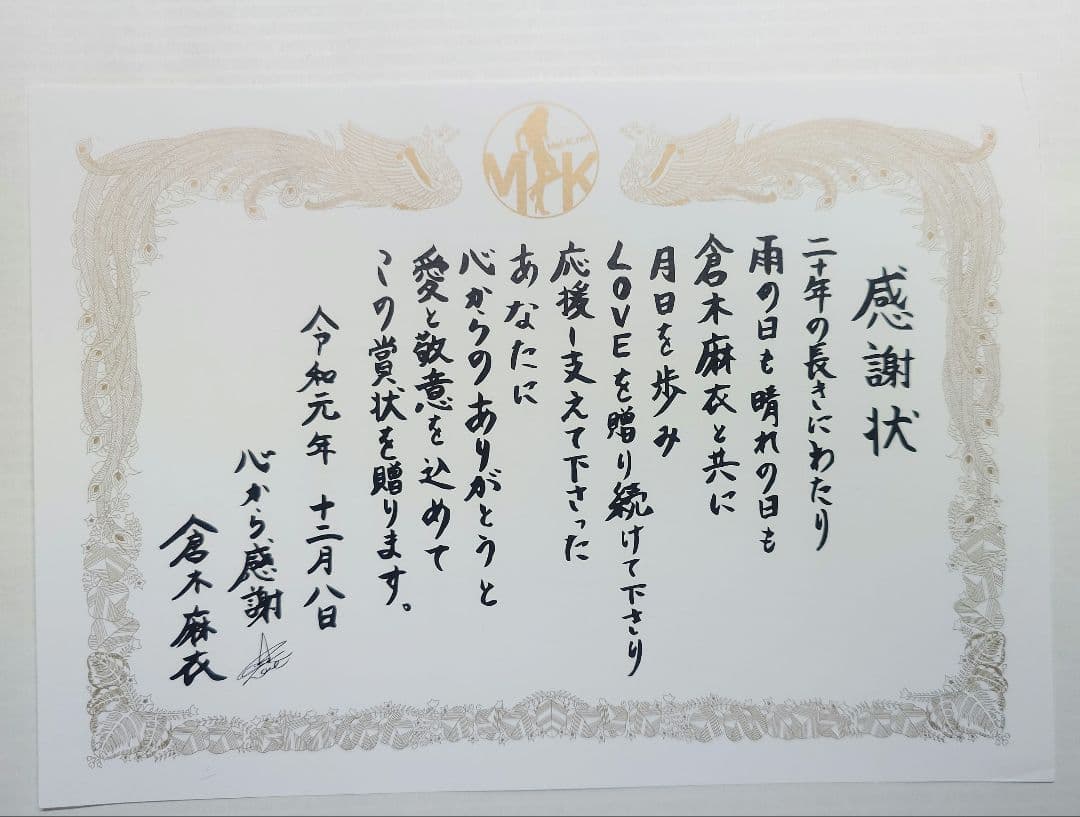 感謝状
二十年の長きにわたり
雨の日も晴れの日も
倉木麻衣と共に
月日を歩み
LOVEを贈り続けて下さり
応援し支えて下さった
あなたに
心からのありがとうと
愛と敬意を込めて
この賞状を贈ります。
令和元年 十二月八日
心から、感謝
倉木麻衣
M K